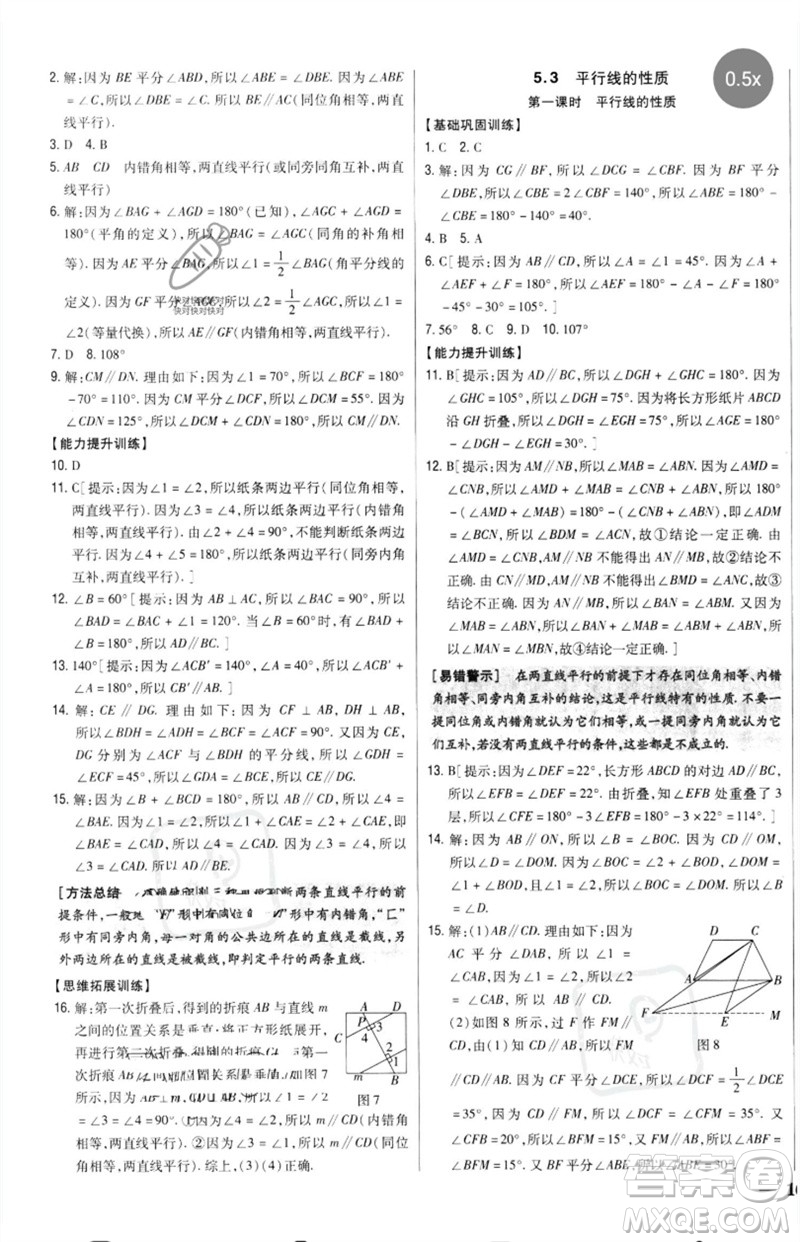 2. 解:因为 BE 平分∠ABD,所以∠ABE = ∠DBE. 因为∠ABE
= ∠C,所以∠DBE = ∠C,所以 BE∥AC(同位角相等,两直
线平行).
3. D  4. B
5. AB  CD  内错角相等,两直线平行(或同旁内角互补,两直
线平行)
6. 解:因为∠BAG + ∠AGD = 180°(已知),∠AGC + ∠AGD =
180°(平角的定义),所以∠BAG = ∠AGC(同角的补角相
等). 因为 AE 平分∠BAG,所以∠1 = 1/2∠BAG(角平分线的
定义). 因为 GF 平分∠AGC,所以∠2 = 1/2∠AGC,所以∠1 =
∠2(等量代换),所以 AE∥GF(内错角相等,两直线平行).
7. D  8. 108°
9. 解:CM∥DN. 理由如下:因为∠1 = 70°,所以∠BCF = 180°
-70° = 110°. 因为 CM 平分∠DCF,所以∠DCM = 55°. 因为
∠CDN = 125°,所以∠DCM + ∠CDN = 180°,所以 CM∥DN.
【能力提升训练】
10. D
11. C[提示:因为∠1 = ∠2,所以纸条两边平行(同位角相等,
两直线平行). 因为∠3 = ∠4,所以纸条两边平行(内错角
相等,两直线平行). 由∠2 + ∠4 = 90°,不能判断纸条两边
平行. 因为∠4 + ∠5 = 180°,所以纸条两边平行(同旁内角
互补,两直线平行).]
12. ∠B = 60°[提示:因为 AB ⊥ AC,所以∠BAC = 90°,所以
∠BAD = ∠BAC + ∠1 = 120°. 当∠B = 60°时,∠BAD +
∠B = 180°,所以 AD∥BC. ]
13. 140°[提示:因为∠ACB′ = 140°,∠A = 40°,所以∠ACB′ +
∠A = 180°,所以 CB′∥AB.]
14. 解:CE ∥ DG. 理由如下:因为 CF ⊥ AB, DH ⊥ AB, 所以
∠ACF = 90°,∠ADH = 90°,所以∠BDH = 90°. 又因为 CE,
DG 分别为∠ACF 与∠BDH 的平分线,所以∠GDH =
∠ECF = 45°,所以∠GDA = ∠BCE = 135°,所以 CE∥DG.
15. 解:因为∠B + ∠BCD = 180°,所以 AB∥CD,所以∠4 =
∠BAE. 因为∠1 = ∠2,所以∠1 + ∠CAE = ∠2 + ∠CAE,即
∠BAE = ∠CAD,所以∠4 = ∠CAD. 因为∠3 = ∠4,所以
∠3 = ∠CAD. 所以 AD∥BE.
[方法总结] 判断两条直线平行的前
提条件,一般地“F”形中有同位角 “ ”形中有内错角,“匚”
形中有同旁内角,每一对角的公共边所在的直线是截线,
另外两边所在的直线是被截线,即判定平行的两条直线.
【思维拓展训练】
16. 解:第一次折叠后,得到的折痕 AB 与直线 m
之间的位置关系是垂直;将正方形纸展开,
再进行第二次折叠,得到的折痕 CD 与第一
次折痕之间的位置关系是垂直. 如图 7
所示,因为 AB⊥m,CD⊥AB,所以∠1 = ∠2
= ∠3 = ∠4 = 90°. ①因为∠3 = ∠1,所以 m∥CD(内错角
相等,两直线平行). ②因为∠4 = ∠2,所以 m∥CD(同位角
相等,两直线平行). 综上,(3)(4)正确.
A D P 3 C 4 2 1 m B
图 7
快对快对快对
快对快对快对
0.5x
5.3  平行线的性质
第一课时  平行线的性质
【基础巩固训练】
1. C  2. C
3. 解:因为 CG∥BF,所以∠DCG = ∠CBF. 因为 BF 平分
∠DBE,所以∠CBE = 2∠CBF = 140°,所以∠ABE = 180° -
∠CBE = 180° - 140° = 40°.
4. B  5. A
6. C[提示:因为 AB∥CD,所以∠A + ∠AFD = 180°. 因为
∠AEF + ∠F + ∠AFE = 180°,所以∠AEF = 180° - ∠F = 180°
-45° - 30° = 105°.]
7. 56°  8. C  9. D  10. 107°
【能力提升训练】
11. B[提示:因为 AD∥BC,所以∠DGH + ∠GHC = 180°. 因为
∠GHC = 105°,所以∠DGH = 75°. 因为将长方形纸片 ABCD
沿 GH 折叠,所以∠EGH = ∠DGH = 75°,所以∠AGE = 180°
- ∠DGH - ∠EGH = 30°. ]
12. B[提示:因为 AM∥NB,所以∠MAB = ∠ABN. 因为∠AMD
= ∠CNB,所以∠AMD + ∠MAB = ∠CNB + ∠ABN,所以 180°
- (∠AMD + ∠MAB) = 180° - (∠CNB + ∠ABN),即∠ADM
= ∠BCN,故①结论一定正确. 因为 AM∥NB,不能得出
∠AMD = ∠CNB,故②结论不一定正确. 因为 AM∥NB 不能
得出 CN∥DM,所以不能得出∠BDM = ∠ANC,故③结论
不一定正确. 因为 AN∥MB,所以∠MBA = ∠NAB. 又因为
∠MAB = ∠ABN,所以∠MAB + ∠NAB = ∠ABN + ∠MBA,所
以∠MAN = ∠MBN,故④结论一定正确. ]
[易错警示] 在两直线平行的前提下才存在同位角相等、内错
角相等、同旁内角互补的结论,这是平行线特有的性质. 不要一
提同位角或内错角就认为它们相等,或一提同旁内角就认为它
们互补,若没有两直线平行的条件,这些都是不成立的.
13. B[提示:因为∠DEF = 22°,长方形 ABCD 的对边 AD∥
BC,所以∠EFB = ∠DEF = 22°. 由折叠,∠EFB 处重叠了 3
层,所以∠CFE = 180° - 3∠EFB = 180° - 3 × 22° = 114°. ]
14. 解:因为 AB∥ON,所以∠B = ∠BOC. 因为 CD∥OM,
所以∠D = ∠DOM. 因为∠BOC = ∠DOM,
所以∠B = ∠D.
15. 解:(1)AB∥CD. 理由如下:因为
AC 平分∠DAB, 所以∠1 =
∠CAB,因为∠1 = ∠2,所以∠2 =
∠CAB,所以 AB∥CD.
(2)如图 8 所示,过 F 作 FM∥
D C A B F E M
图 8
CD∥CD. 因为 CF 平分∠DCE,所以∠DCF = 1/2∠DCE =
35°,所以∠CFM = 35°. 又因为 AB∥CD,所以 AB∥FM. 因为
∠CFB = 20°,所以∠BFM = 15°. 又因为 AB∥FM,所以∠ABF
= ∠BFM = 15°. 又因为 BF 平分∠ABE,所以∠ABE = 30°.
答案圈